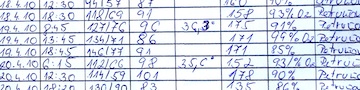 18.4.10 12:30 94/57 87 160 90%
18.4.10 18:30 118/69 91 158 93% O2 Petru
19.4.10 8:45 127/76 96 36,3° 175 91% Petru
19.4.10 13:45 134/71 86 171 94% O2 Petru
19.4.10 18:45 146/77 91 171 85% Petru
20.4.10 112/66 98 35,6° 152 93% O2 Petru
20.4.10 12:30 114/59 101 178 90% Petru
20.4.10 18:20 130/90 83 135 86%